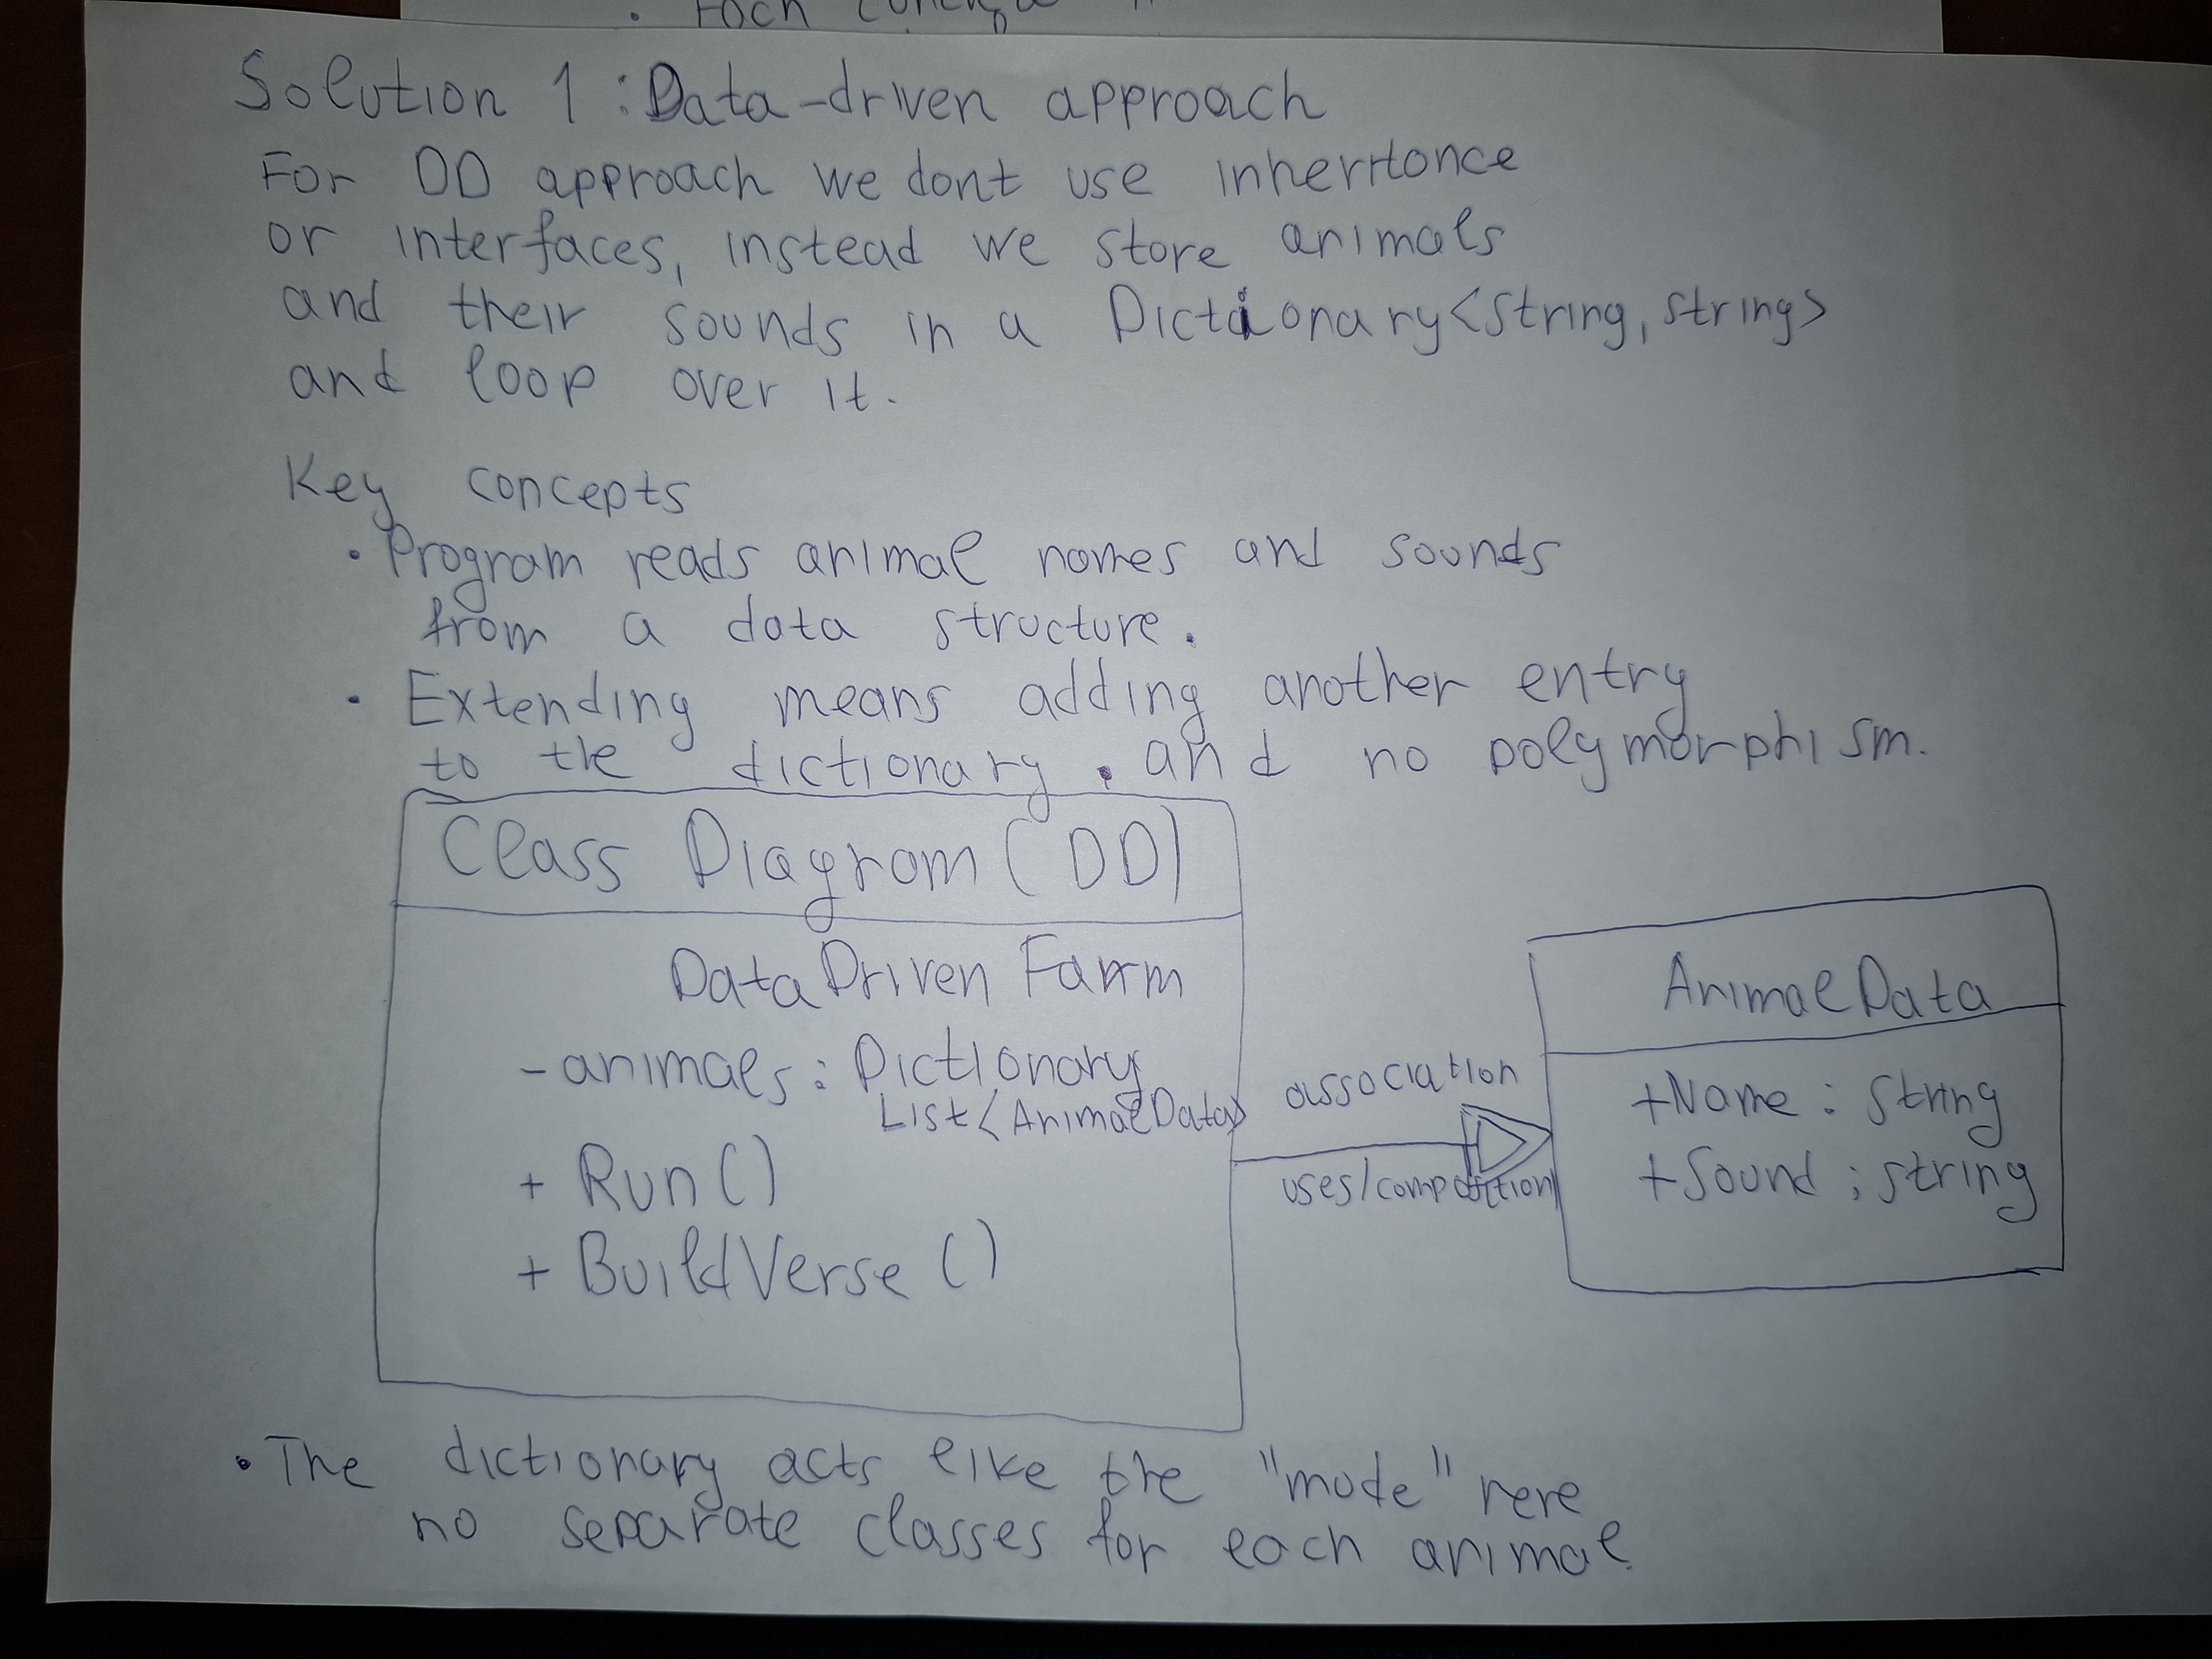 Solution 1 : Data-driven approach
For DD approach we dont use inheritance
or interfaces, instead we store animals
and their sounds in a Dictionary<string, string>
and loop over it.
Key concepts
• Program reads animal names and sounds
from a data structure.
• Extending means adding another entry
to the dictionary . and no polymorphism.
Class Diagram (DD)
DataDriven Farm
- animals : Dictionary
List<AnimalData>
+ Run()
+ BuildVerse ()
association
uses/composition
AnimalData
+Name : string
+Sound : string
• The dictionary acts like the "mode" here
no separate classes for each animal